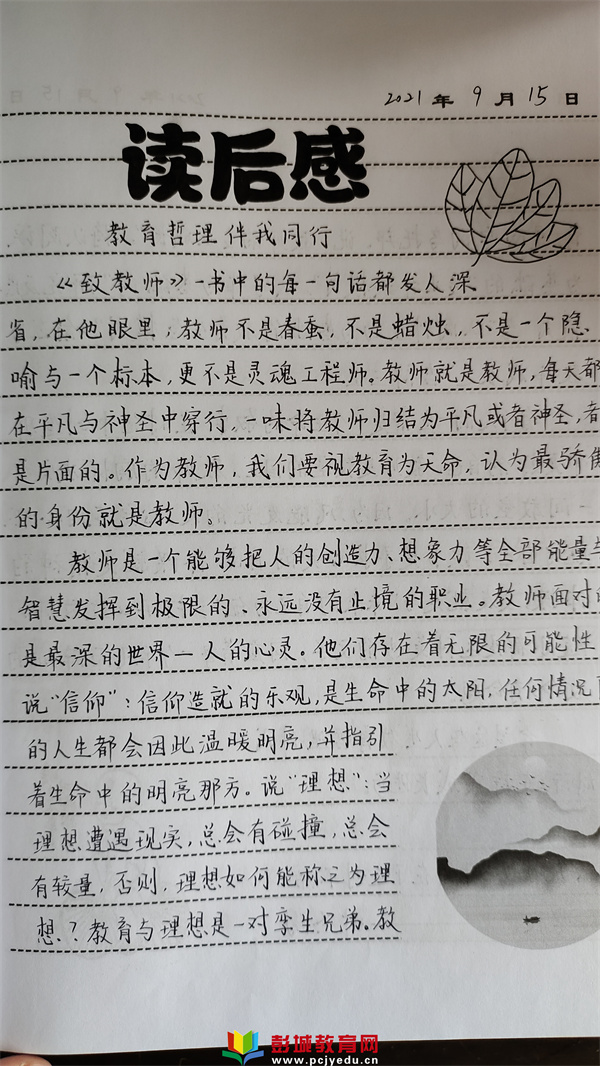 2021年9月15日
读后感
教育哲理伴我同行
《致教师》一书中的每一句话都发人深
省,在他眼里;教师不是春蚕,不是蜡烛,不是一个隐
喻与一个标本,更不是灵魂工程师。教师就是教师,每天都
在平凡与神圣中穿行,一味将教师归结为平凡或者神圣,都
是片面的。作为教师,我们要视教育为天命,认为最骄傲
的身份就是教师。
教师是一个能够把人的创造力、想象力等全部能量与
智慧发挥到极限的、永远没有止境的职业。教师面对的
是最深的世界—人的心灵。他们存在着无限的可能性
说“信仰”:信仰造就的乐观,是生命中的太阳,任何情况
的人生都会因此温暖明亮,并指引
着生命中的明亮那方。说“理想”:当
理想遭遇现实,总会有碰撞,总会
有较量,否则,理想如何能称之为理
想?教育与理想是一对孪生兄弟。教
彭城教育网
www.pcjyedu.cn